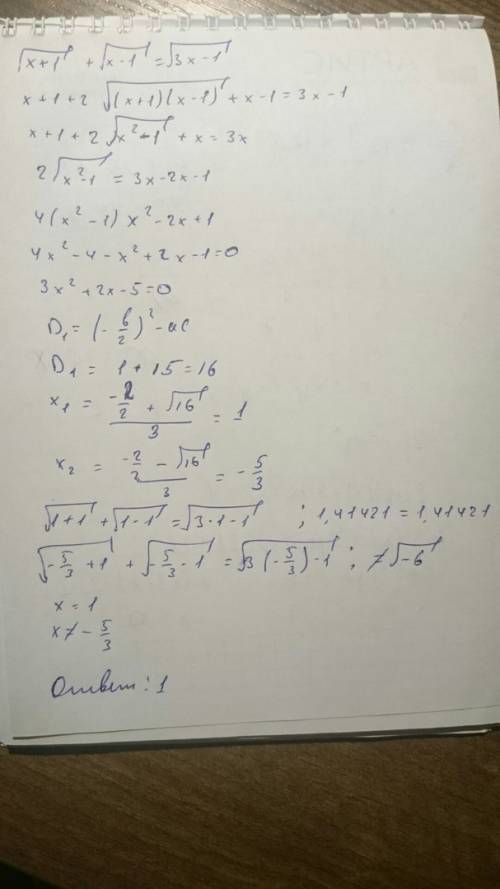 √(x+1) + √(x-1) = √(3x-1)
x+1+2 √((x+1)(x-1)) + x-1 = 3x-1
x+1+2√(x²-1) + x = 3x
2√(x²-1) = 3x-2x-1
4(x²-1) x²-2x+1
4x²-4-x²+2x-1=0
3x²+2x-5=0
D₁ = (-b/2)² - ac
D₁ = 1+15=16
x₁ = (-2/2 + √16)/3 = 1
x₂ = (-2/2 - √16)/3 = -5/3
√(1+1) + √(1-1) = √(3·1-1) ; 1,41421 = 1,41421
√(-5/3+1) + √(-5/3-1) = √(3(-5/3)-1) ; ≠√-6
x = 1
x ≠ -5/3
Ответ: 1